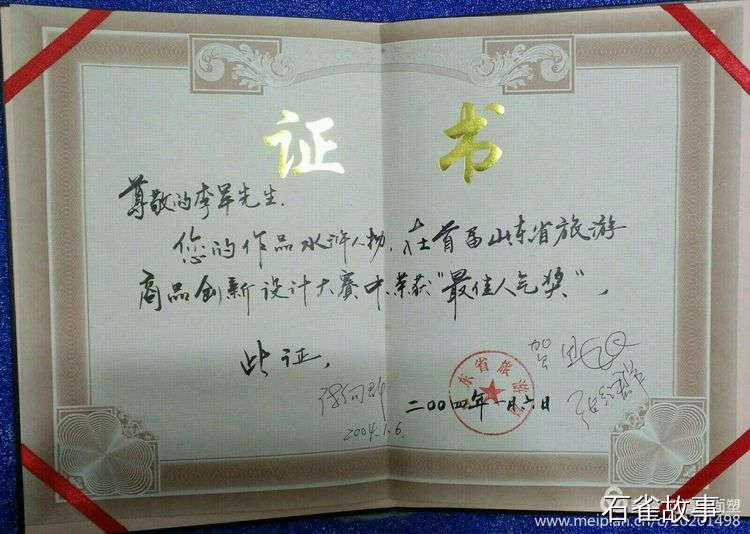 证书
尊敬的李军先生.
您的作品水浒人物,在首届山东省旅游
商品创新设计大赛中荣获“最佳人气奖”,
此证,
东省旅游
二〇〇四年一月六日
2004.1.6.
石雀故事
面塑
www.meipian.cn/c/10201498